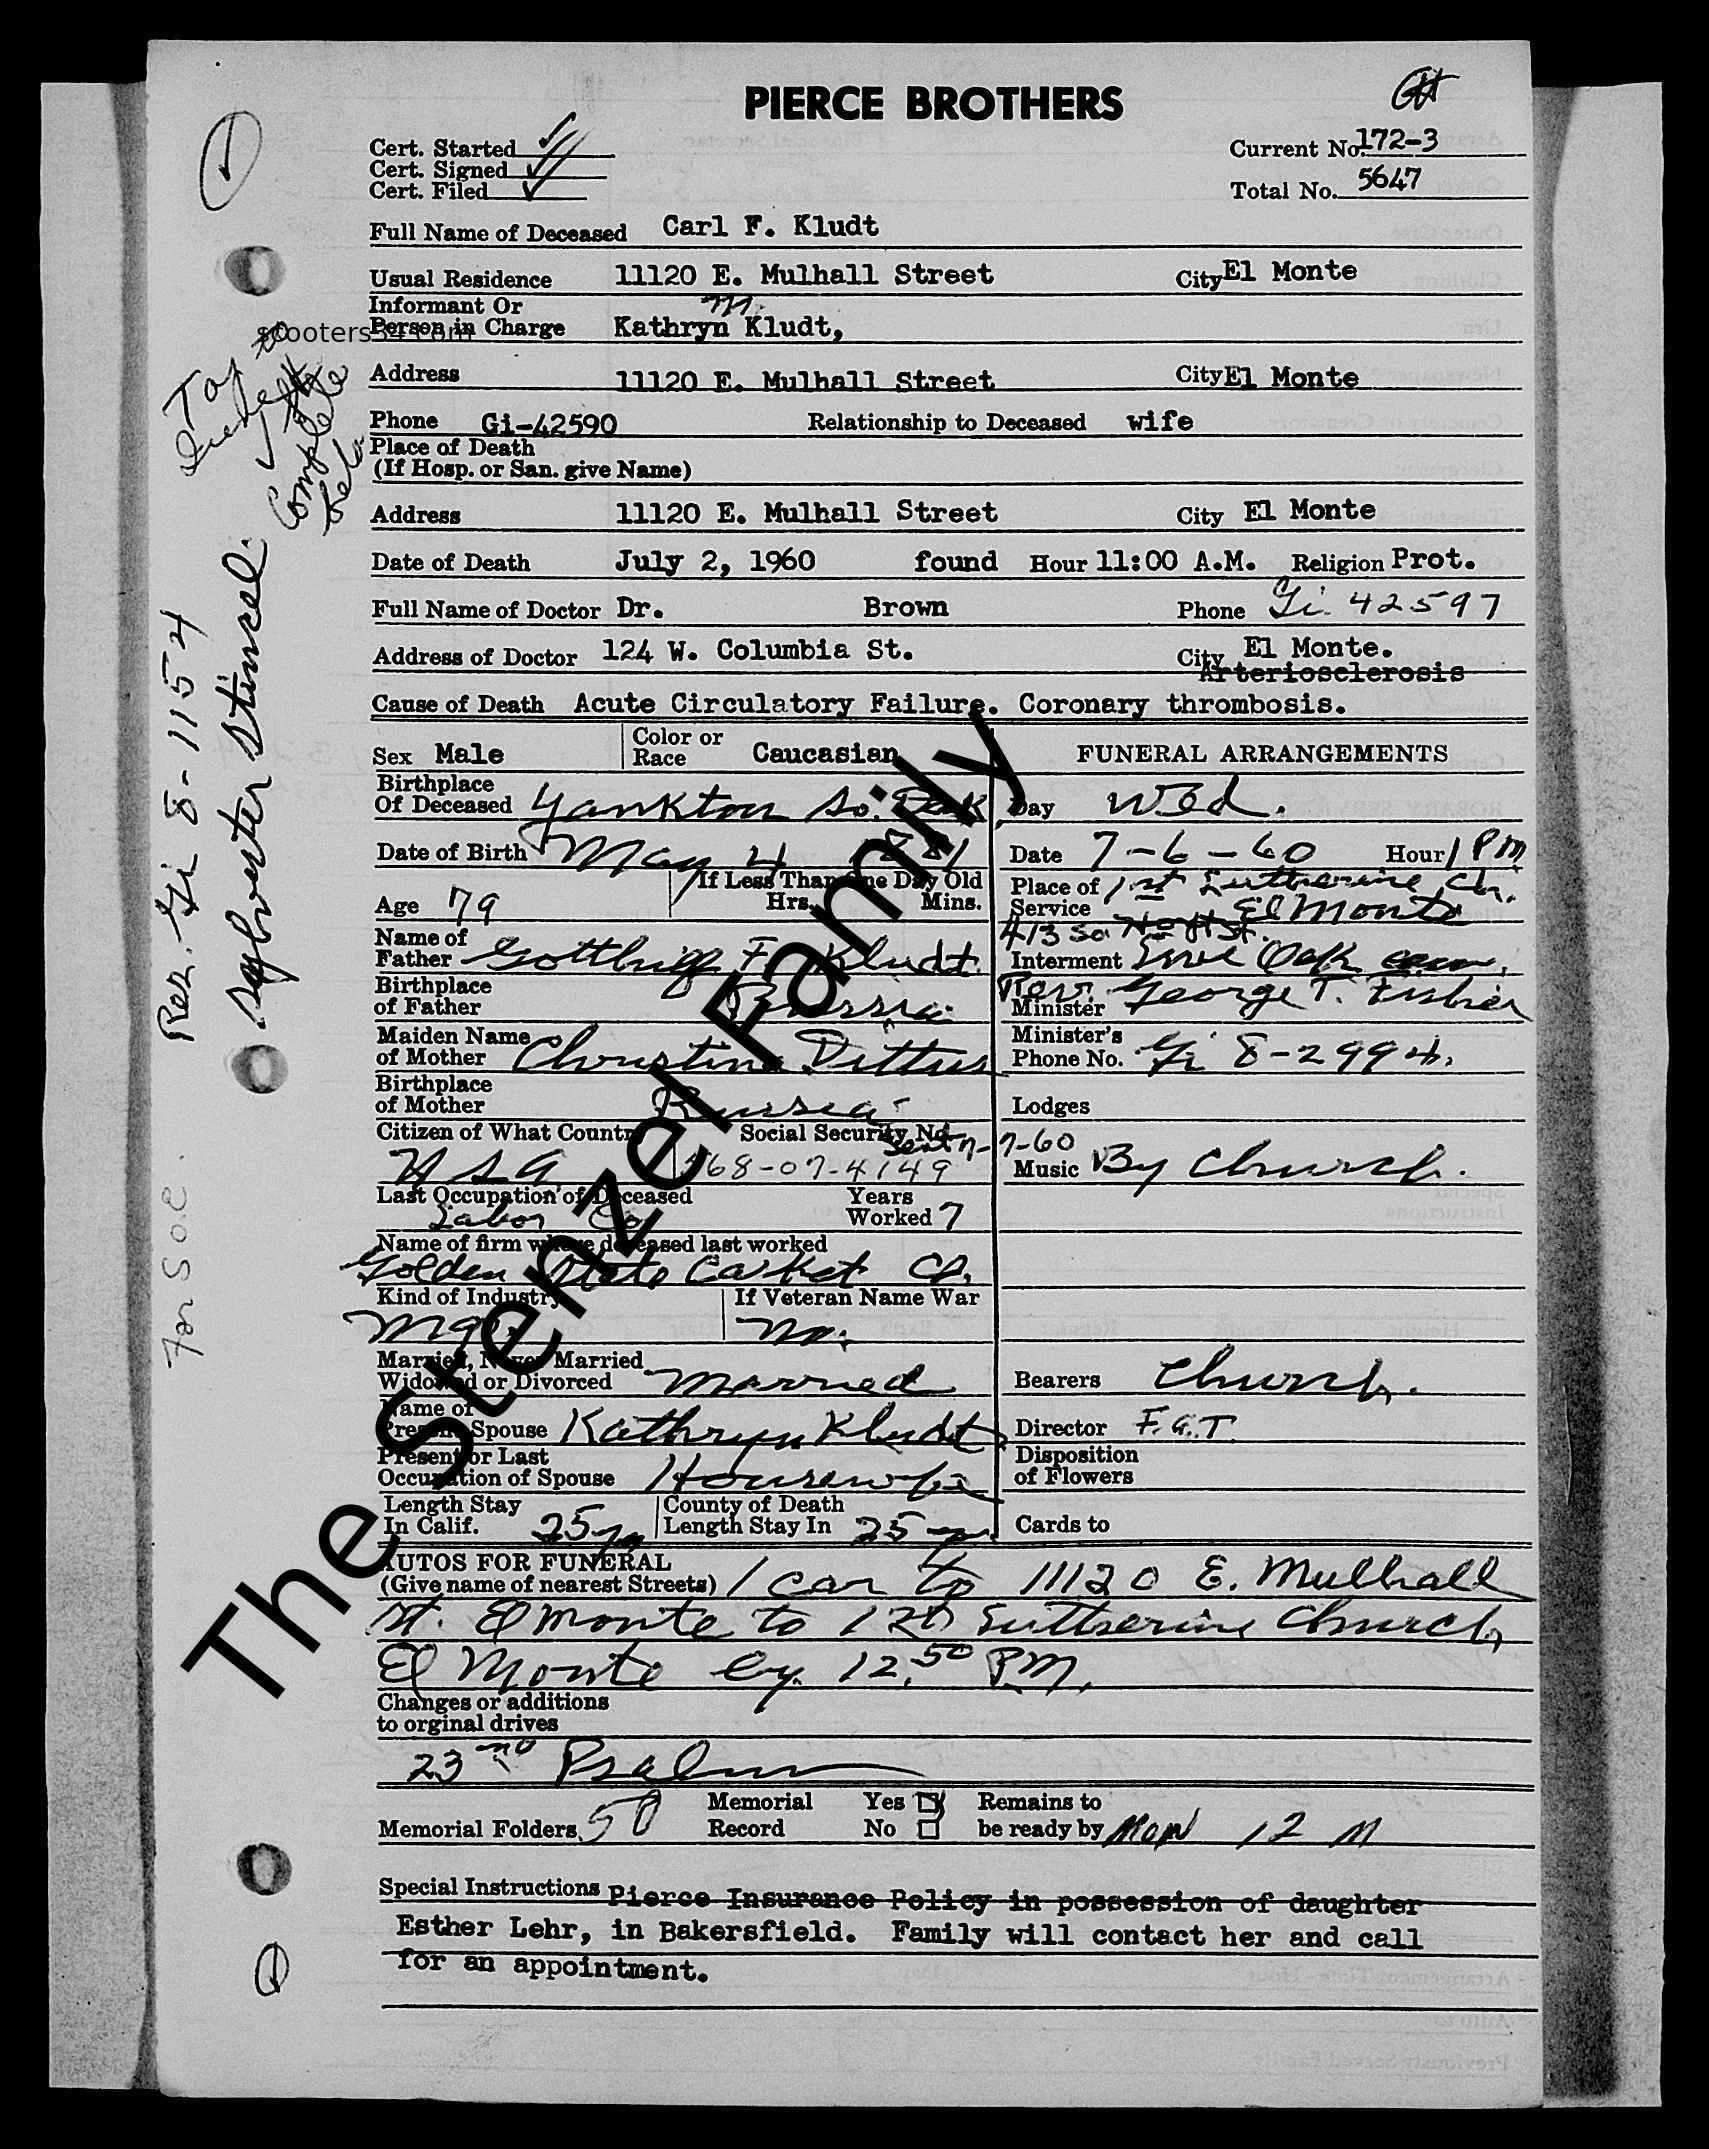 PIERCE BROTHERS
Cert. Started
Cert. Signed
Cert. Filed
Current No. 172-3
Total No. 5647
Full Name of Deceased Carl F. Kludt
Usual Residence 11120 E. Mulhall Street City El Monte
Informant Or
Person in Charge Kathryn M. Kludt,
scooters54.com
Address 11120 E. Mulhall Street City El Monte
Phone Gi-42590 Relationship to Deceased wife
Place of Death
(If Hosp. or San. give Name)
Address 11120 E. Mulhall Street City El Monte
Date of Death July 2, 1960 found Hour 11:00 A.M. Religion Prot.
Full Name of Doctor Dr. Brown Phone Gi. 42597
Address of Doctor 124 W. Columbia St. City El Monte.
Arteriosclerosis
Cause of Death Acute Circulatory Failure. Coronary thrombosis.
Sex Male Color or Race Caucasian FUNERAL ARRANGEMENTS
Birthplace
Of Deceased Yankton So. Dak Day Wed.
Date of Birth May 4 1881 Date 7-6-60 Hour 1 PM
Age 79 If Less Than One Day Old Hrs. Mins.
Place of Service 1st Lutherine Ch. El Monte
413 So
Name of
Father F. Kludt Interment Live Oak cem.
Birthplace
of Father Russia Minister Rev. George T. Fisher
Maiden Name
of Mother Christina Dittus Minister's Phone No. Gi 8-2994.
Birthplace
of Mother Russia Lodges
Citizen of What Country USA Social Security No. 568-07-4149
Sent 7-7-60
Music By Church.
Last Occupation of Deceased Labor Years Worked 7
Name of firm where deceased last worked
Golden State Casket Co.
Kind of Industry Mgr. If Veteran Name War No.
Married, Never Married
Widowed or Divorced Married Bearers Church.
Name of
Present Spouse Kathryn Kludt Director F.G.T.
Present or Last
Occupation of Spouse Housewife Disposition of Flowers
Length Stay
In Calif. 25 yrs County of Death Length Stay In 25 yrs. Cards to
AUTOS FOR FUNERAL
(Give name of nearest Streets) 1 car to 11120 E. Mulhall
St. El Monte to 1st Lutherine Church
El Monte by 12:50 PM.
Changes or additions
to orginal drives
23rd Psalm
Memorial Folders 50 Memorial Record Yes No Remains to be ready by Mon 12 M
Special Instructions Pierce Insurance Policy in possession of daughter
Esther Lehr, in Bakersfield. Family will contact her and call
for an appointment.
Complete
Res. Gi 8-1154
Sylvester Stinsel.
For S.O.C.
The Stenzel Family